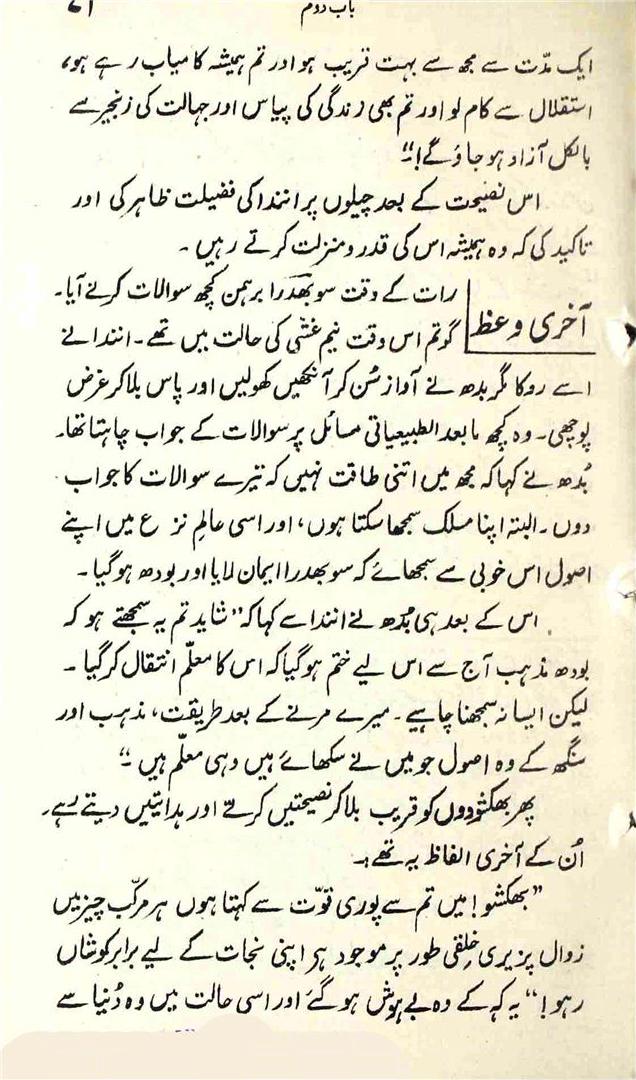 باب دوم
ایک مدّت سے مجھ سے بہت قریب ہو اور تم ہمیشہ کامیاب رہے ہو،
استقلال سے کام لو اور تم بھی زندگی کی پیاس اور جہالت کی زنجیر سے
بالکل آزاد ہو جاؤ گے!"
اس نصیحت کے بعد چیلوں پر انندا کی فضیلت ظاہر کی اور
تاکید کی کہ وہ ہمیشہ اس کی قدر و منزلت کرتے رہیں۔
آخری وعظ
رات کے وقت سوبھدرا برہمن کچھ سوالات کرنے آیا۔
گوتم اس وقت نیم غشّی کی حالت میں تھے۔ انندا نے
اسے روکا مگر بدھ نے آواز سُن کر آنکھیں کھولیں اور پاس بلا کر غرض
پوچھی۔ وہ کچھ مابعد الطبیعیاتی مسائل پر سوالات کے جواب چاہتا تھا۔
بُدھ نے کہا کہ مجھ میں اتنی طاقت نہیں کہ تیرے سوالات کا جواب
دوں۔ البتہ اپنا مسلک سمجھا سکتا ہوں، اور اسی عالمِ نزع میں اپنے
اصول اس خوبی سے سمجھائے کہ سوبھدرا ایمان لایا اور بودھ ہو گیا۔
اس کے بعد ہی بُدھ نے انندا سے کہا کہ "شاید تم یہ سمجھتے ہو کہ
بودھ مذہب آج سے اس لیے ختم ہو گیا کہ اس کا معلّم انتقال کر گیا۔
لیکن ایسا نہ سمجھنا چاہیے۔ میرے مرنے کے بعد طریقت، مذہب اور
سنگھ کے وہ اصول جو میں نے سکھائے ہیں وہی معلّم ہیں۔"
پھر بھکشوؤں کو قریب بلا کر نصیحتیں کرتے اور ہدایتیں دیتے رہے۔
اُن کے آخری الفاظ یہ تھے:۔
"بھکشو! میں تم سے پوری قوّت سے کہتا ہوں ہر مرکّب چیز میں
زوال پزیری خِلقی طور پر موجود ہے اپنی نجات کے لیے برابر کوشاں
رہو!" یہ کہہ کے وہ بے ہوش ہو گئے اور اسی حالت میں وہ دُنیا سے